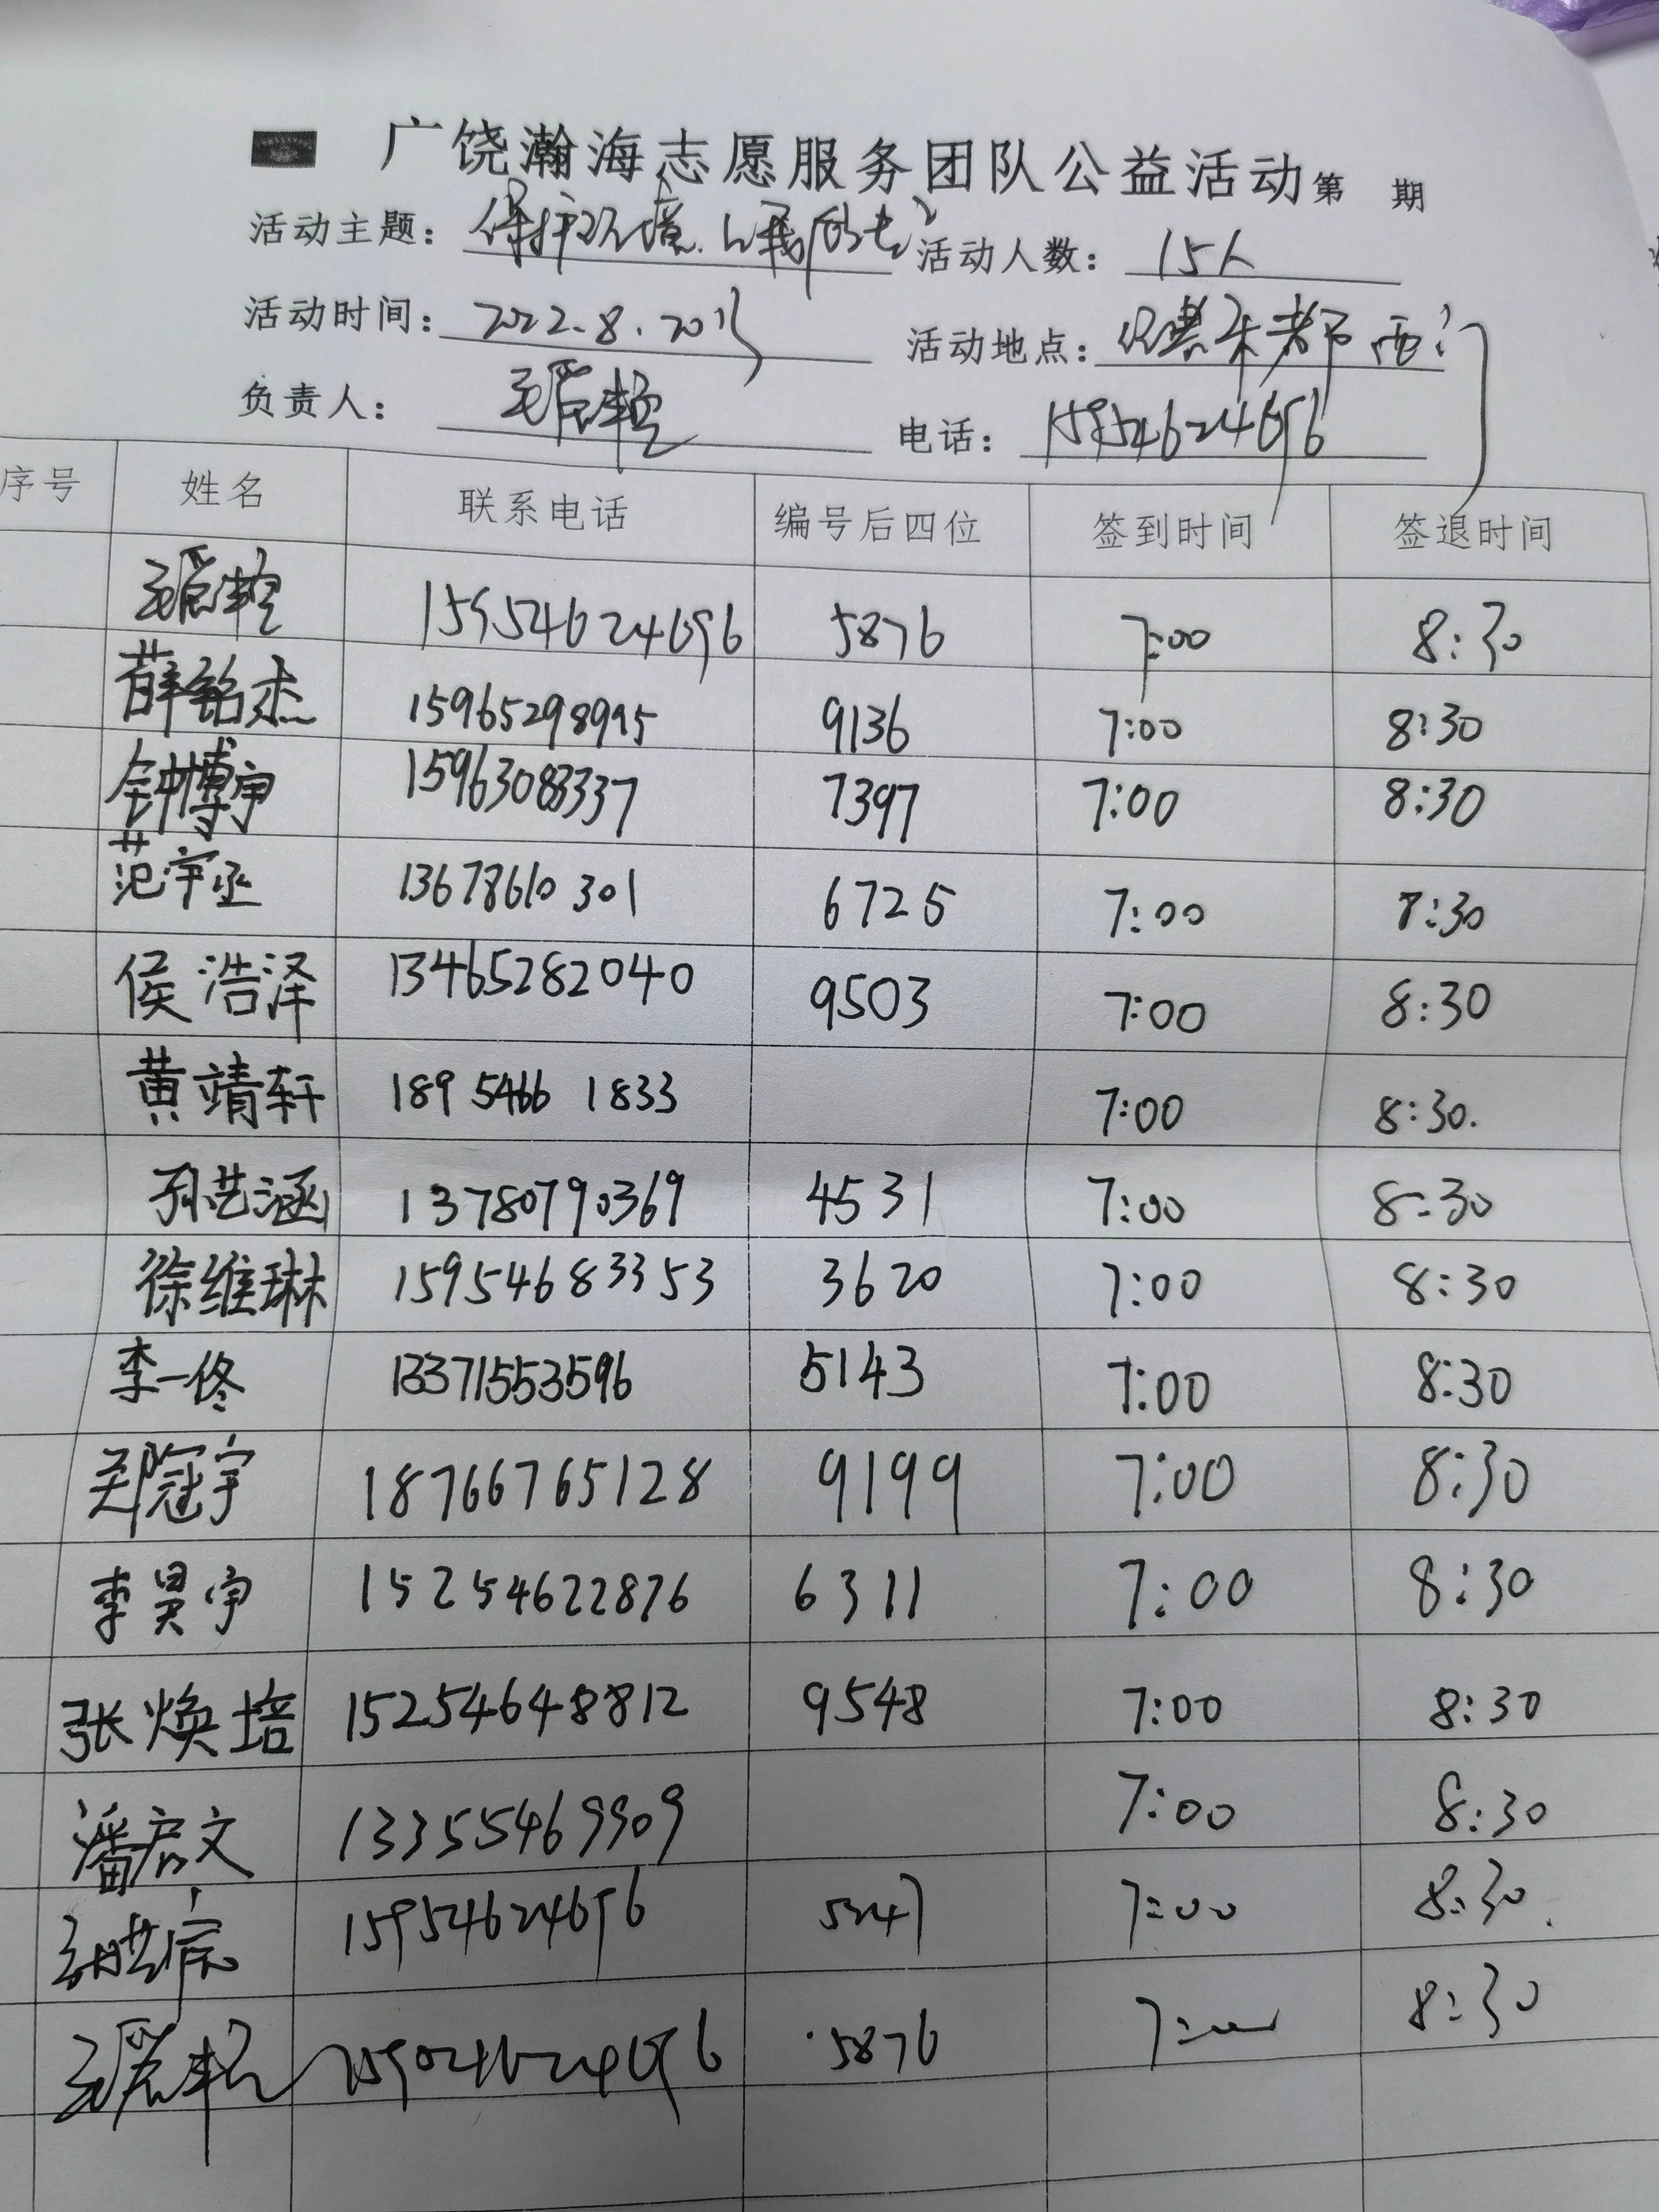 广饶瀚海志愿服务团队公益活动第 期
活动主题：保护环境 活动人数：15人
活动时间：2022.8.20 活动地点：西门
负责人： 电话：15954624696
序号 姓名 联系电话 编号后四位 签到时间 签退时间
15954624696 5876 7:00 8:30
薛铭杰 15965298995 9136 7:00 8:30
钟博宇 15963083337 7397 7:00 8:30
范宇丞 13678610301 6725 7:00 8:30
侯浩泽 13465282040 9503 7:00 8:30
黄靖轩 189 5466 1833 7:00 8:30.
孙艺涵 13780790369 4531 7:00 8:30
徐维琳 15954683353 3620 7:00 8:30
李一佟 13371553596 5143 7:00 8:30
郑冠宇 18766765128 9199 7:00 8:30
李昊宇 15254622876 6311 7:00 8:30
张焕培 15254648812 9548 7:00 8:30
潘启文 13355469909 7:00 8:30
15954624696 5247 7:00 8:30.
5876 7:00 8:30